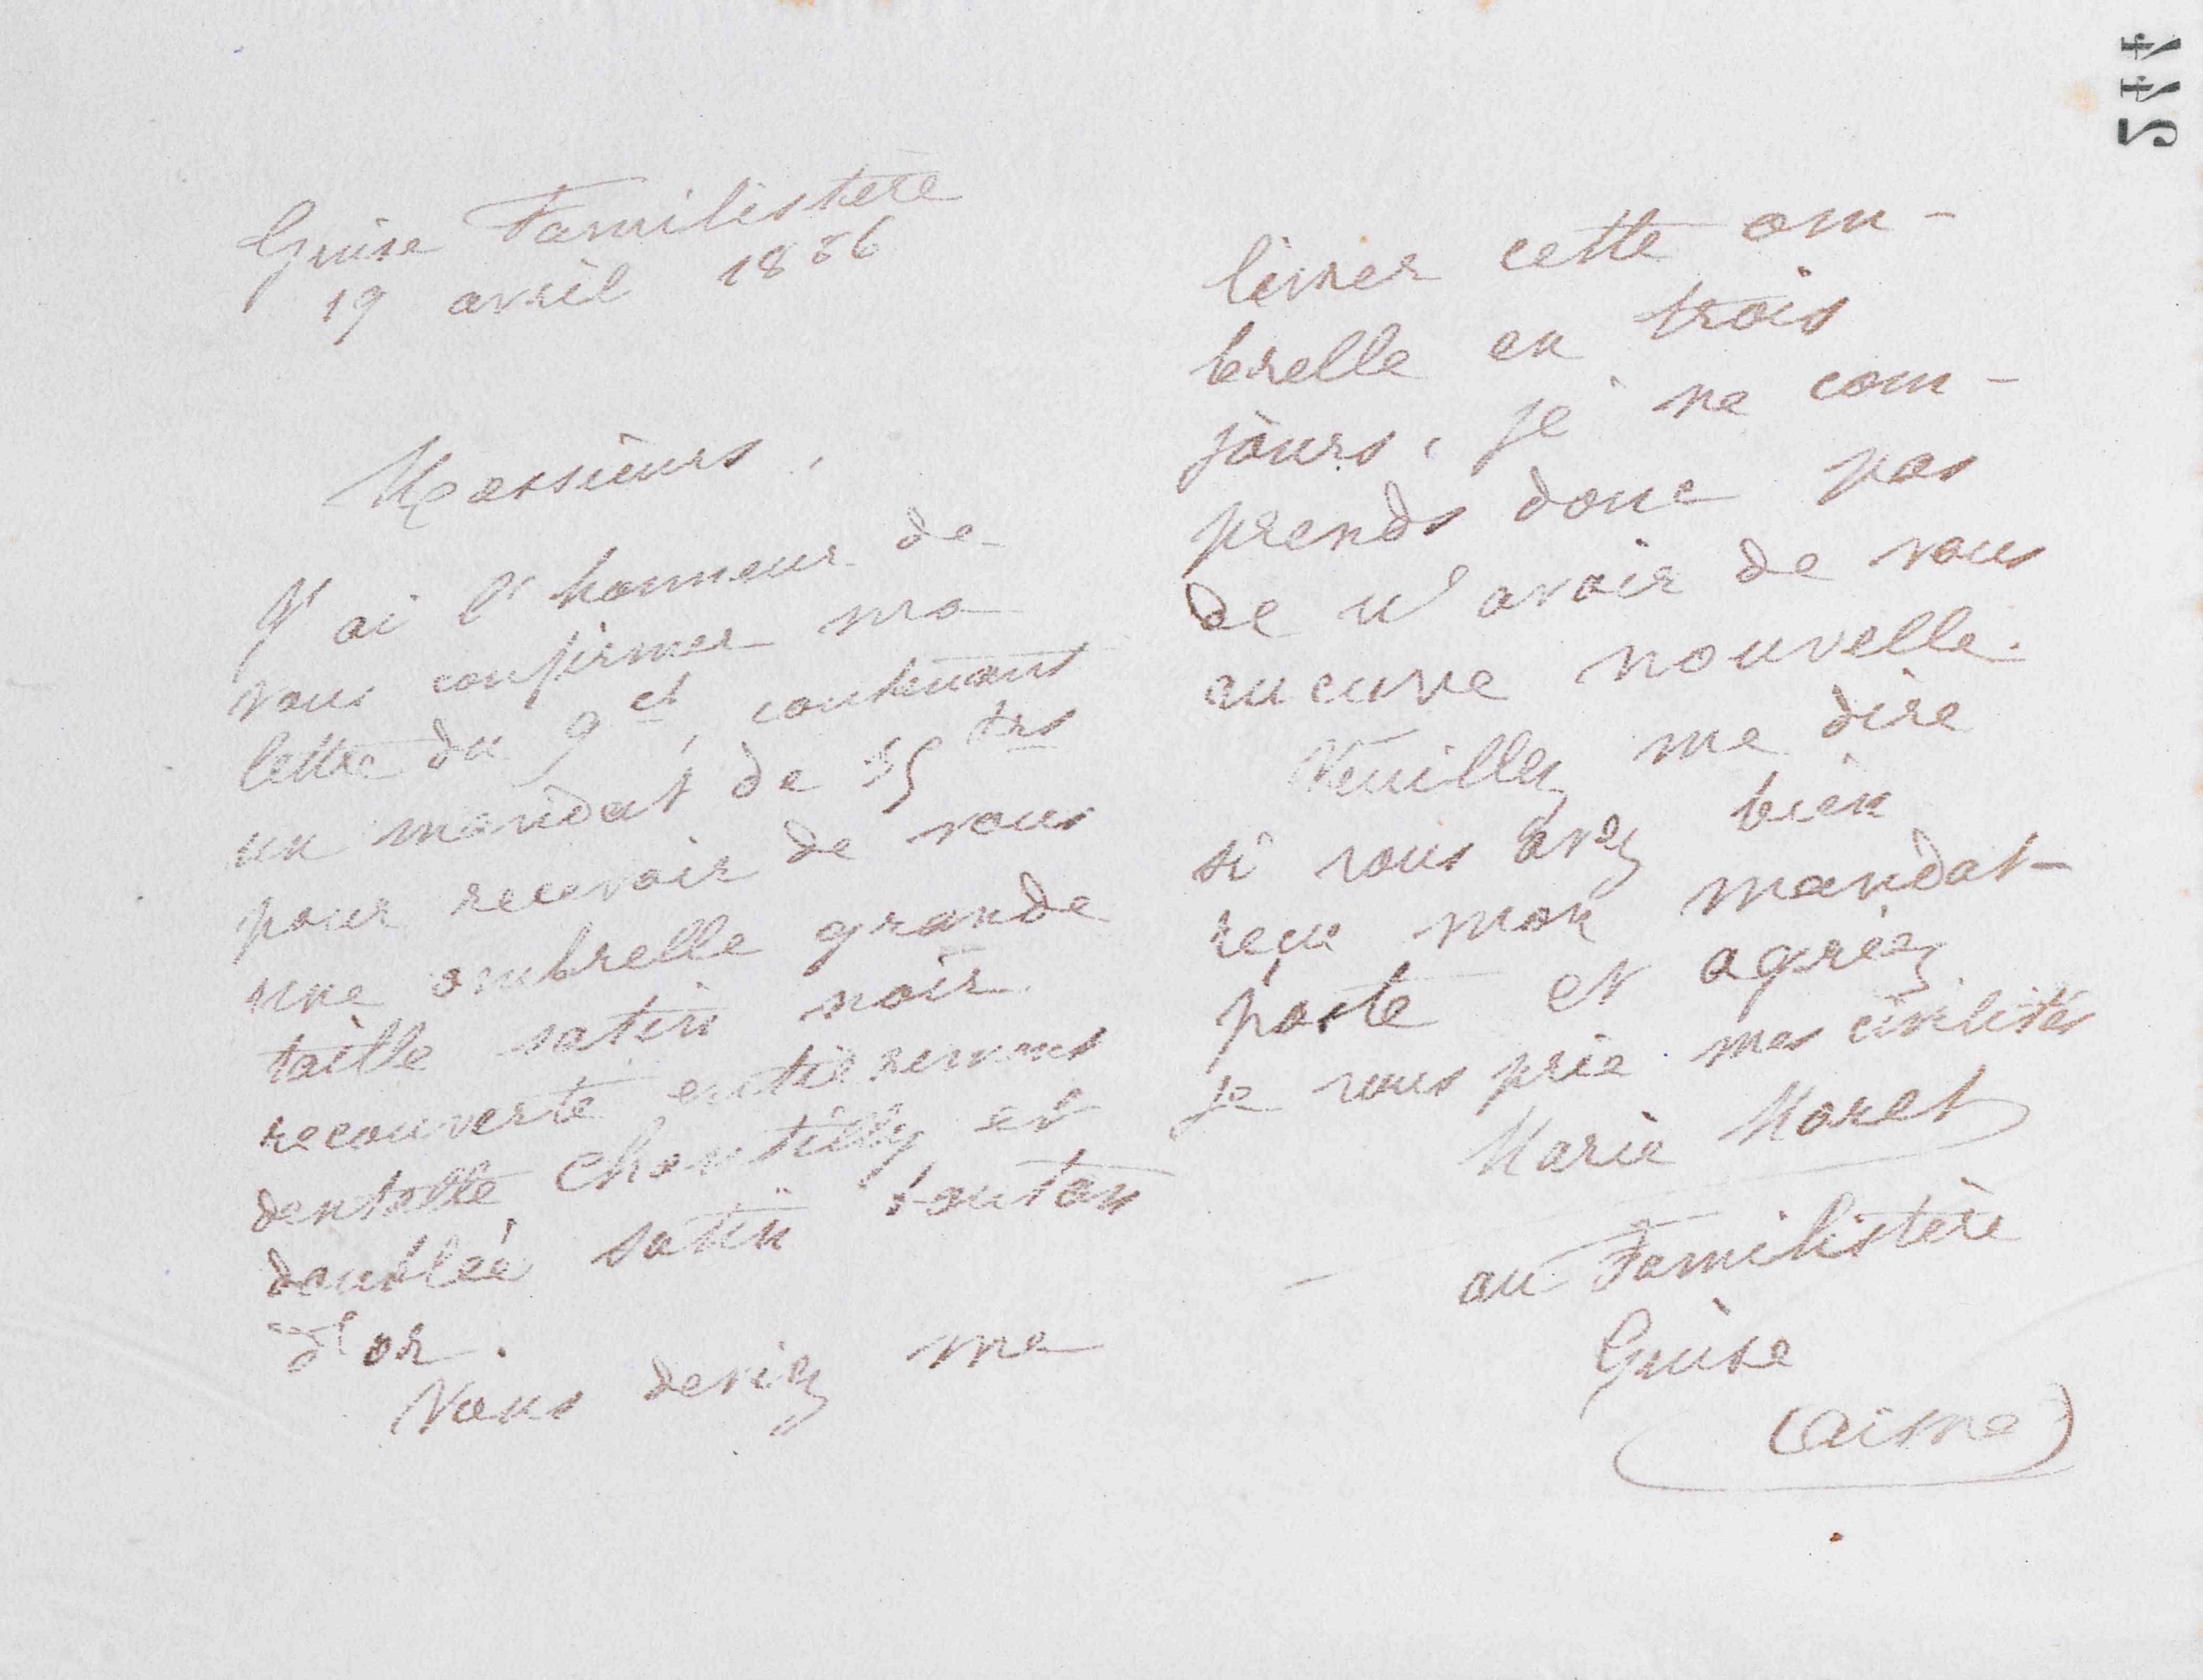 Guise Familistère
19 avril 1886
Messieurs,
J'ai l'honneur de
vous confirmer ma
lettre du 9 ct, contenant
un mandat de 35 frs
pour recevoir de vous
une ombrelle grande
taille satin noir
recouverte entièrement
dentelle Chantilly et
doublée satin bouton
d'or.
Vous deviez me
livrer cette om-
brelle en trois
jours, je ne com-
prends donc pas
de n'avoir de vous
aucune nouvelle.
Veuillez me dire
si vous avez bien
reçu mon mandat-
poste et agréez
je vous prie mes civilités
Marie Moret
au Familistère
Guise
(Aisne)
544